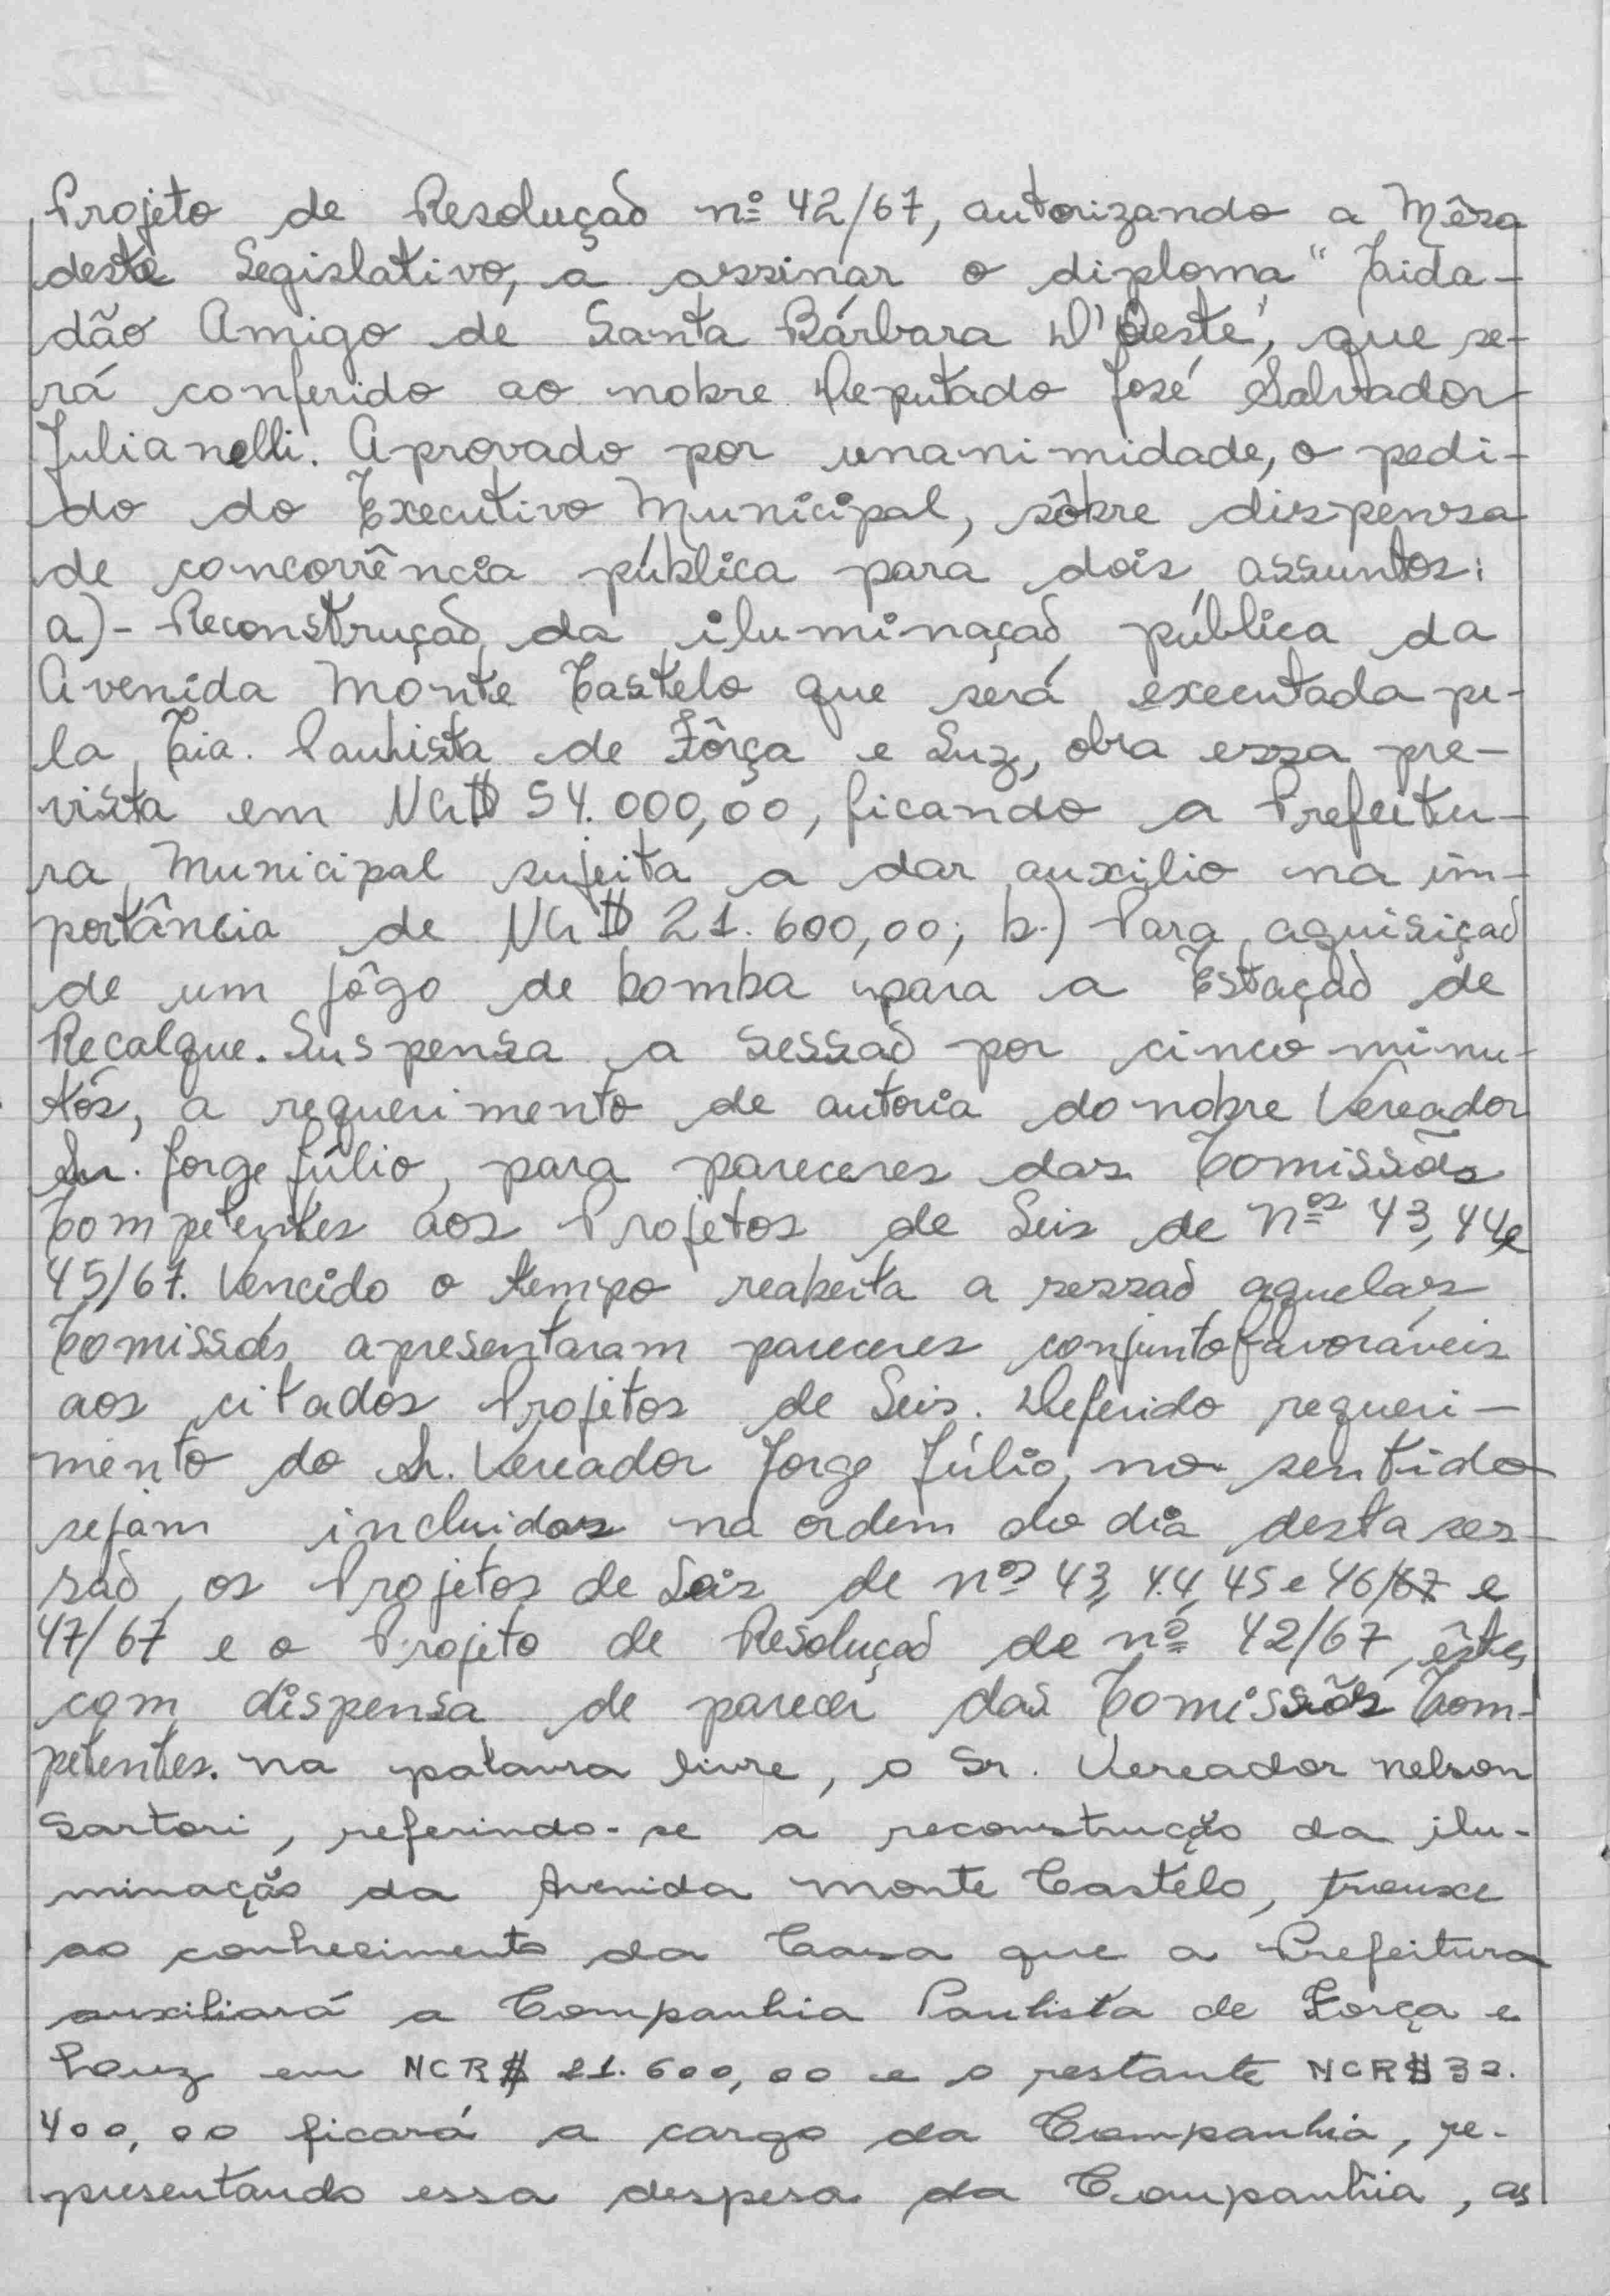 Projeto de Resolução nº 42/67, autorizando a Mêsa
deste Legislativo, a assinar o diploma "Cida-
dão Amigo de Santa Bárbara D'Oeste", que se-
rá conferido ao nobre Deputado José Salvador
Julianelli. Aprovado por unanimidade, o pedi-
do do Executivo Municipal, sôbre dispensa
de concorrência pública para dois assuntos:
a)- Reconstrução da iluminação pública da
Avenida Monte Castelo que será executada pe-
la Cia. Paulista de Fôrça e Luz, obra essa pre-
vista em NCr$ 54.000,00, ficando a Prefeitu-
ra Municipal sujeita a dar auxilio na im-
portância de NCr$ 21.600,00; b.) Para aquisição
de um jôgo de bomba para a Estação de
Recalque. Suspensa a sessão por cinco minu-
tos, a requerimento de autoria do nobre Vereador
Sr. Jorge Júlio, para pareceres das Comissões
Competentes aos Projetos de Leis de nºs 43, 44 e
45/67. Vencido o tempo reaberta a sessão aquelas
Comissões apresentaram pareceres conjunto favoráveis
aos citados Projetos de Leis. Deferido requeri-
mento do Sr. Vereador Jorge Júlio, no sentido
sejam incluidos na ordem do dia desta ses-
são, os Projetos de Leis de nºs 43, 44, 45 e 46/67 e
47/67 e o Projeto de Resolução de nº 42/67, êstes
com dispensa de parecer das Comissões Com-
petentes. Na palavra livre, o Sr. Vereador Nelson
Sartori, referindo-se a reconstrução da ilu-
minação da Avenida Monte Castelo, trouxe
ao conhecimento da Casa que a Prefeitura
auxiliará a Companhia Paulista de Força e
Luz em NCR$ 21.600,00 e o restante NCR$ 32.
400,00 ficará a cargo da Companhia, re-
presentando essa despesa da Companhia, as